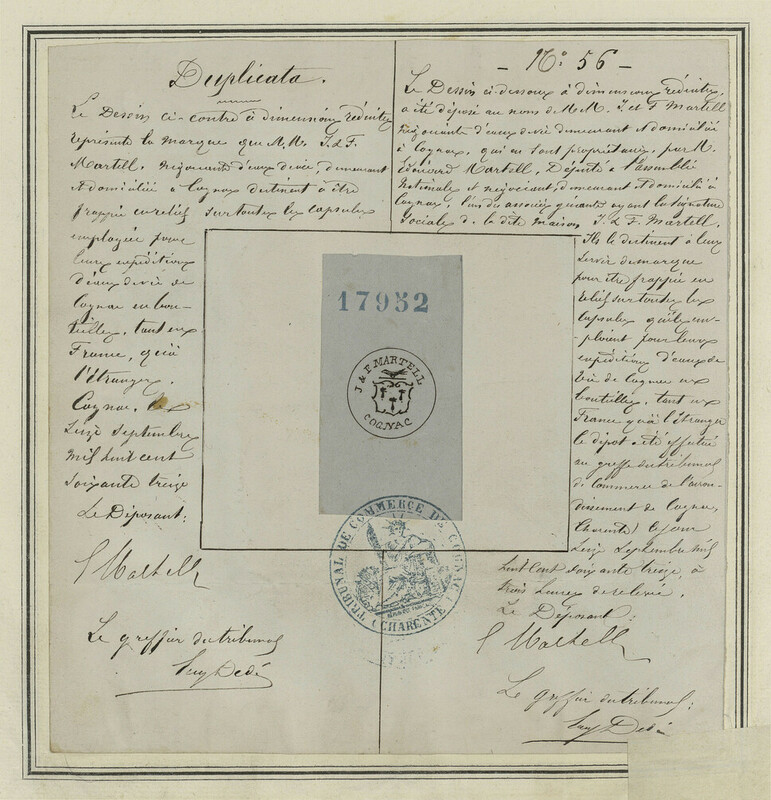 Duplicata.
Le Dessin ci-contre à dimensions réduites
représente la marque que M.M. J. & F.
Martell, négociants d'eaux de vie, demeurant
et domiciliés à Cognac destinent à être
frappée en relief sur toutes les capsules
employées pour
leurs expéditions
d'eaux de vie de
Cognac en bou-
teilles, tant en
France, qu'à
l'étranger.
Cognac, le
Seize Septembre
mil huit cent
soixante treize
Le Déposant:
Martell
Le greffier du tribunal
- No. 56 -
Le Dessin ci-dessous à dimensions réduites,
a été déposé au nom de M.M. J. et F. Martell
négociants d'eaux de vie demeurant et domiciliés
à Cognac, qui en sont propriétaires, par M.
Edouard Martell, Député à l'assemblée
Nationale et négociant, demeurant et domicilié à
Cognac, l'un des associés gérants ayant la signature
Sociale de la dite maison J. & F. Martell.
Ils le destinent à leur
servir de marque
pour être frappée en
relief sur toutes les
capsules qu'ils em-
-ploient pour leurs
expéditions d'eaux de
vie de Cognac en
bouteilles, tant en
France qu'à l'Etranger
le dépot a été effectué
au greffe du tribunal
de Commerce de l'arron-
dissement de Cognac,
Charente) ce jour
Seize Septembre mil
huit Cent soixante treize, à
trois heures de relevée.
Le Déposant:
Martell
Le greffier du tribunal:
17952
J & F MARTELL
COGNAC
TRIBUNAL DE COMMERCE DE COGNAC
(CHARENTE)